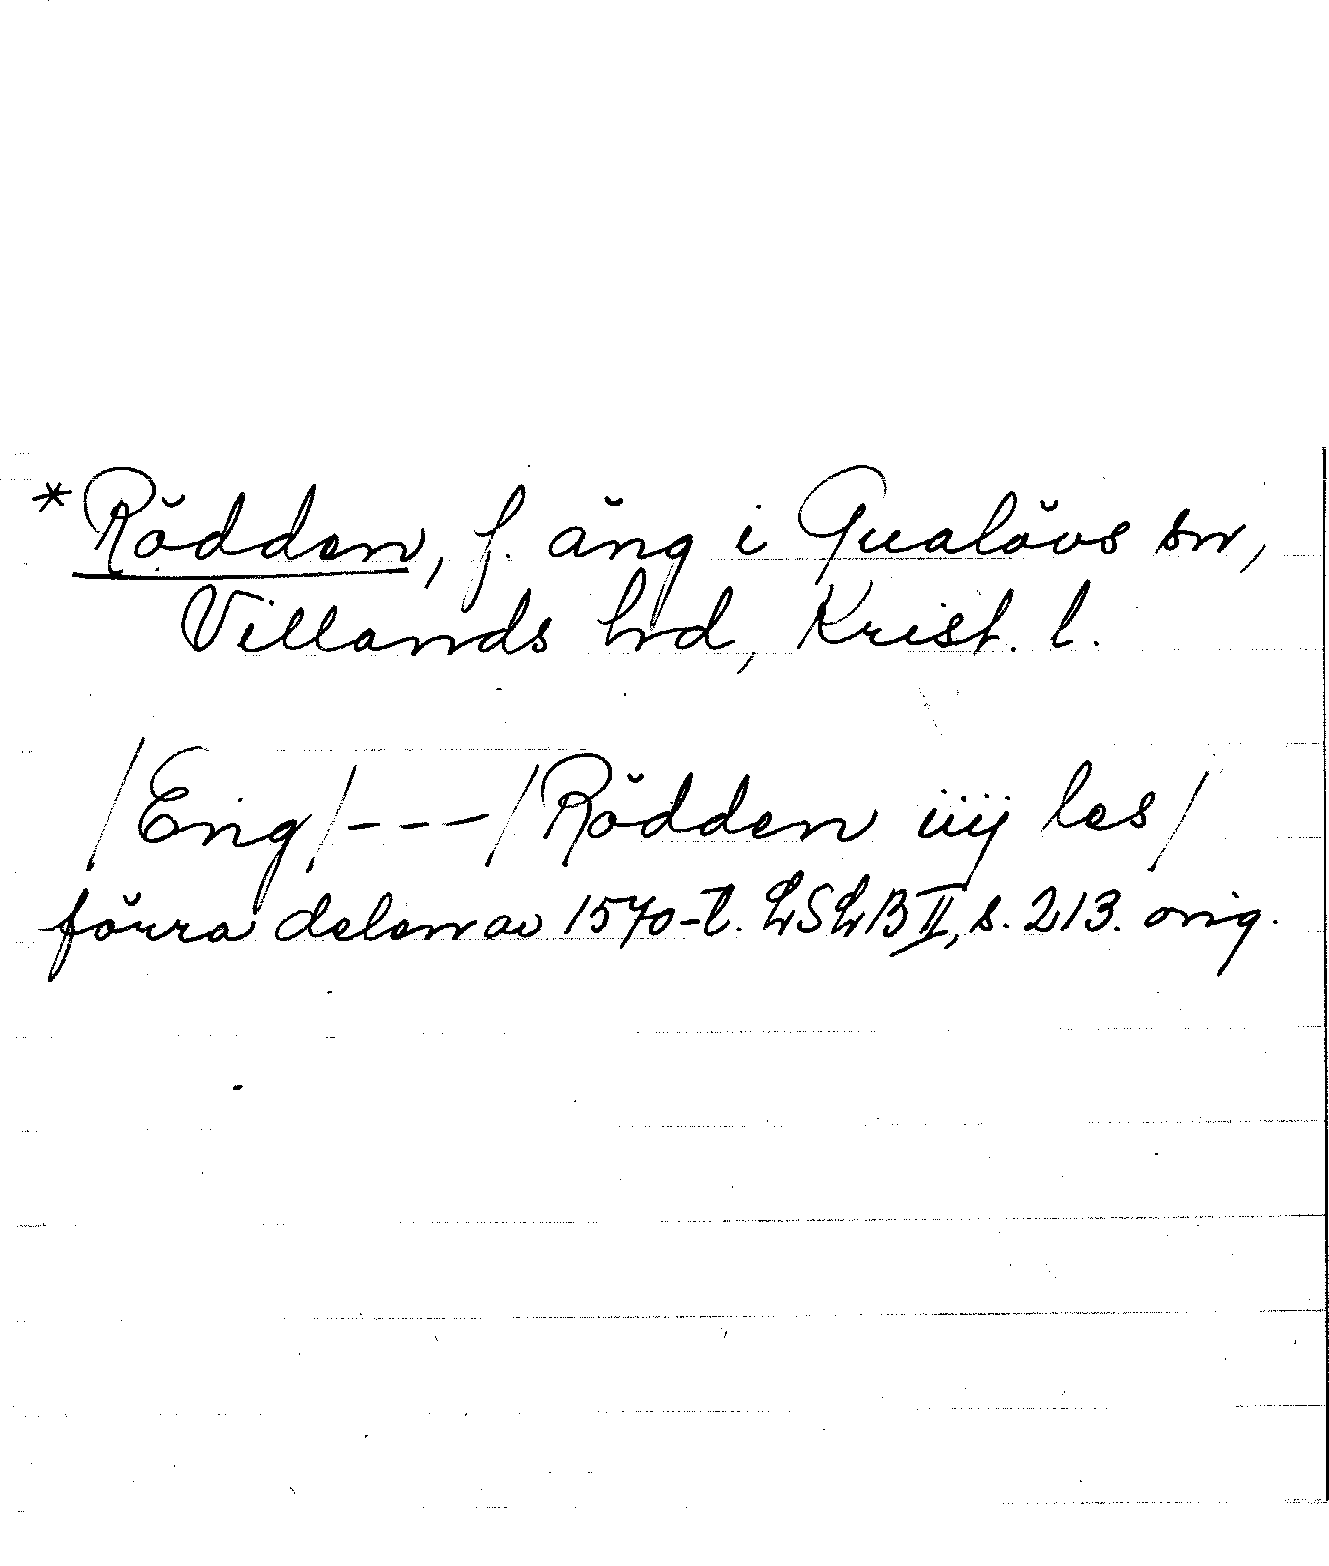 *Rödden, f. äng i Gualövs sn,
Villands hrd, Krist. l.
/Eng/---/Rödden iiij les/
förra delen av 1570-t. LSLB II, s. 213. orig.